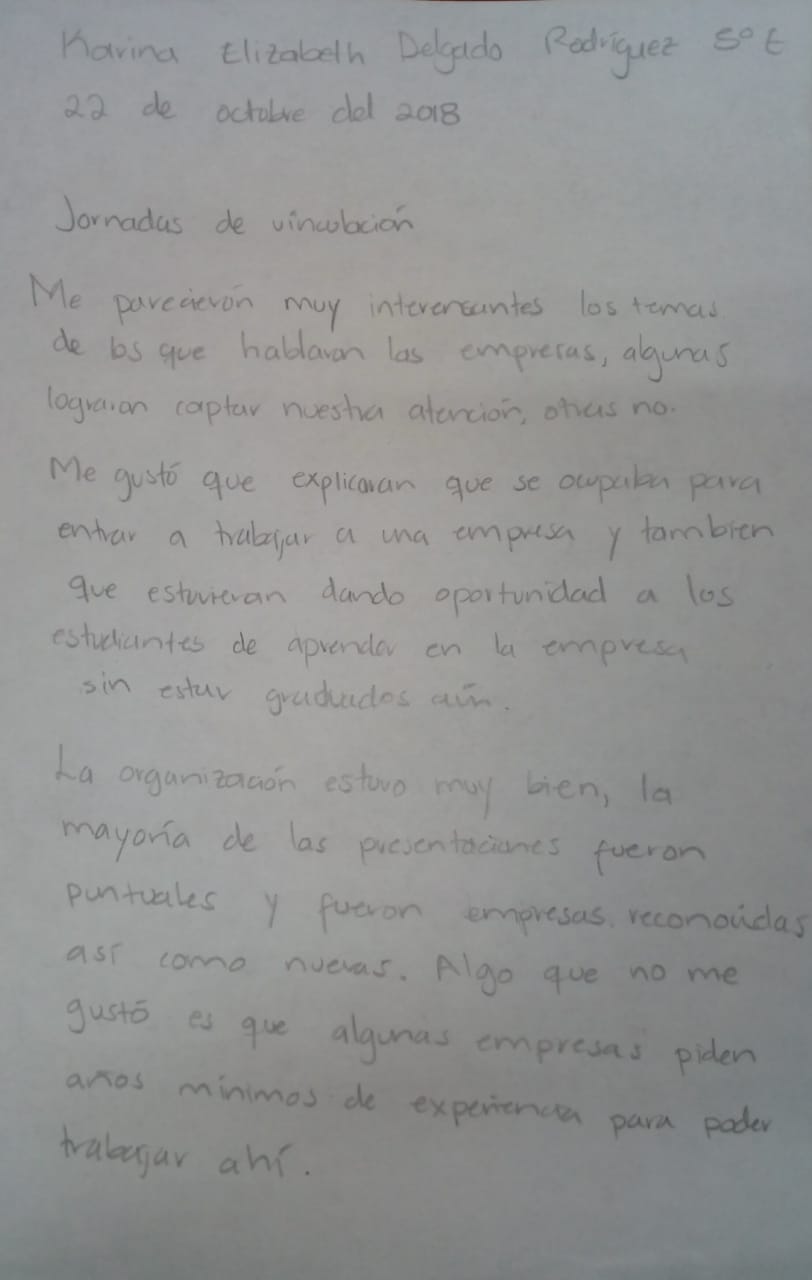 Karina Elizabeth Delgado Rodríguez 5º E
22 de octubre del 2018
Jornadas de vinculación
Me parecieron muy interersantes los temas
de los que hablaron las empresas, algunas
lograron captar nuestra atención, otras no.
Me gustó que explicaran que se ocupaba para
entrar a trabajar a una empresa y tambien
que estuvieran dando oportunidad a los
estudiantes de aprender en la empresa
sin estar graduados aún.
La organización estuvo muy bien, la
mayoría de las presentaciones fueron
puntuales y fueron empresas reconocidas
así como nuevas. Algo que no me
gustó es que algunas empresas piden
años mínimos de experiencia para poder
trabajar ahí.